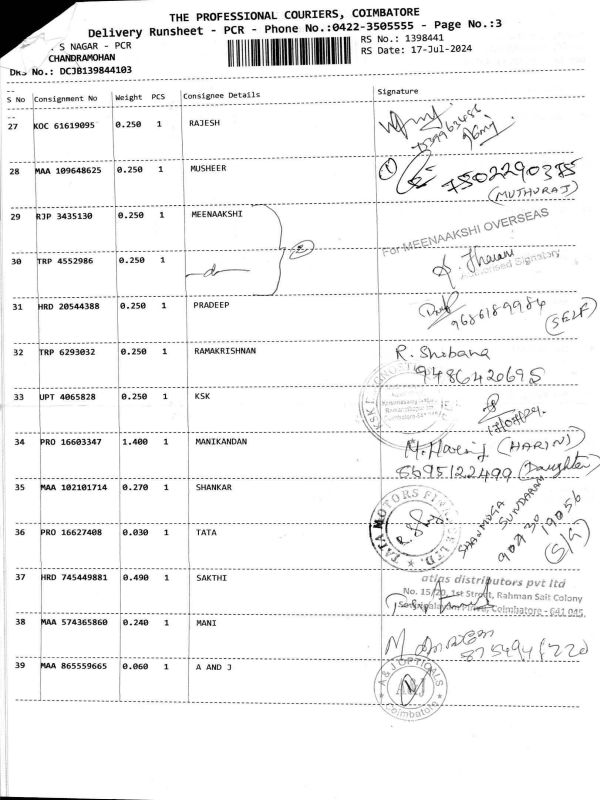 THE PROFESSIONAL COURIERS, COIMBATORE
Delivery Runsheet - PCR - Phone No.:0422-3505555 - Page No.:3
. S NAGAR - PCR
RS No.: 1398441
CHANDRAMOHAN
RS Date: 17-Jul-2024
DRS No.: DCJB139844103
S No Consignment No Weight PCS Consignee Details Signature
27 KOC 61619095 0.250 1 RAJESH
28 MAA 109648625 0.250 1 MUSHEER
① 7502290385
(MUTHURAJ)
29 RJP 3435130 0.250 1 MEENAAKSHI
For MEENAAKSHI OVERSEAS
30 TRP 4552986 0.250 1 -do-
②
Authorised Signatory
31 HRD 20544388 0.250 1 PRADEEP
9686189984
(SELF)
32 TRP 6293032 0.250 1 RAMAKRISHNAN
R. Shobana
9486420695
33 UPT 4065828 0.250 1 KSK
34 PRO 16603347 1.400 1 MANIKANDAN
(HARINI)
(Daughter)
35 MAA 102101714 0.270 1 SHANKAR
SHANMUGA
SUNDARAM
90430 19056
(S/G)
36 PRO 16627408 0.030 1 TATA
TATA MOTORS FINANCE LTD.
37 HRD 745449881 0.490 1 SAKTHI
atlas distributors pvt ltd
No. 15/20, 1st Street, Rahman Sait Colony
Coimbatore - 641 045.
38 MAA 574365860 0.240 1 MANI
39 MAA 865559665 0.060 1 A AND J
A & J OPTICALS
A&J
Coimbatore